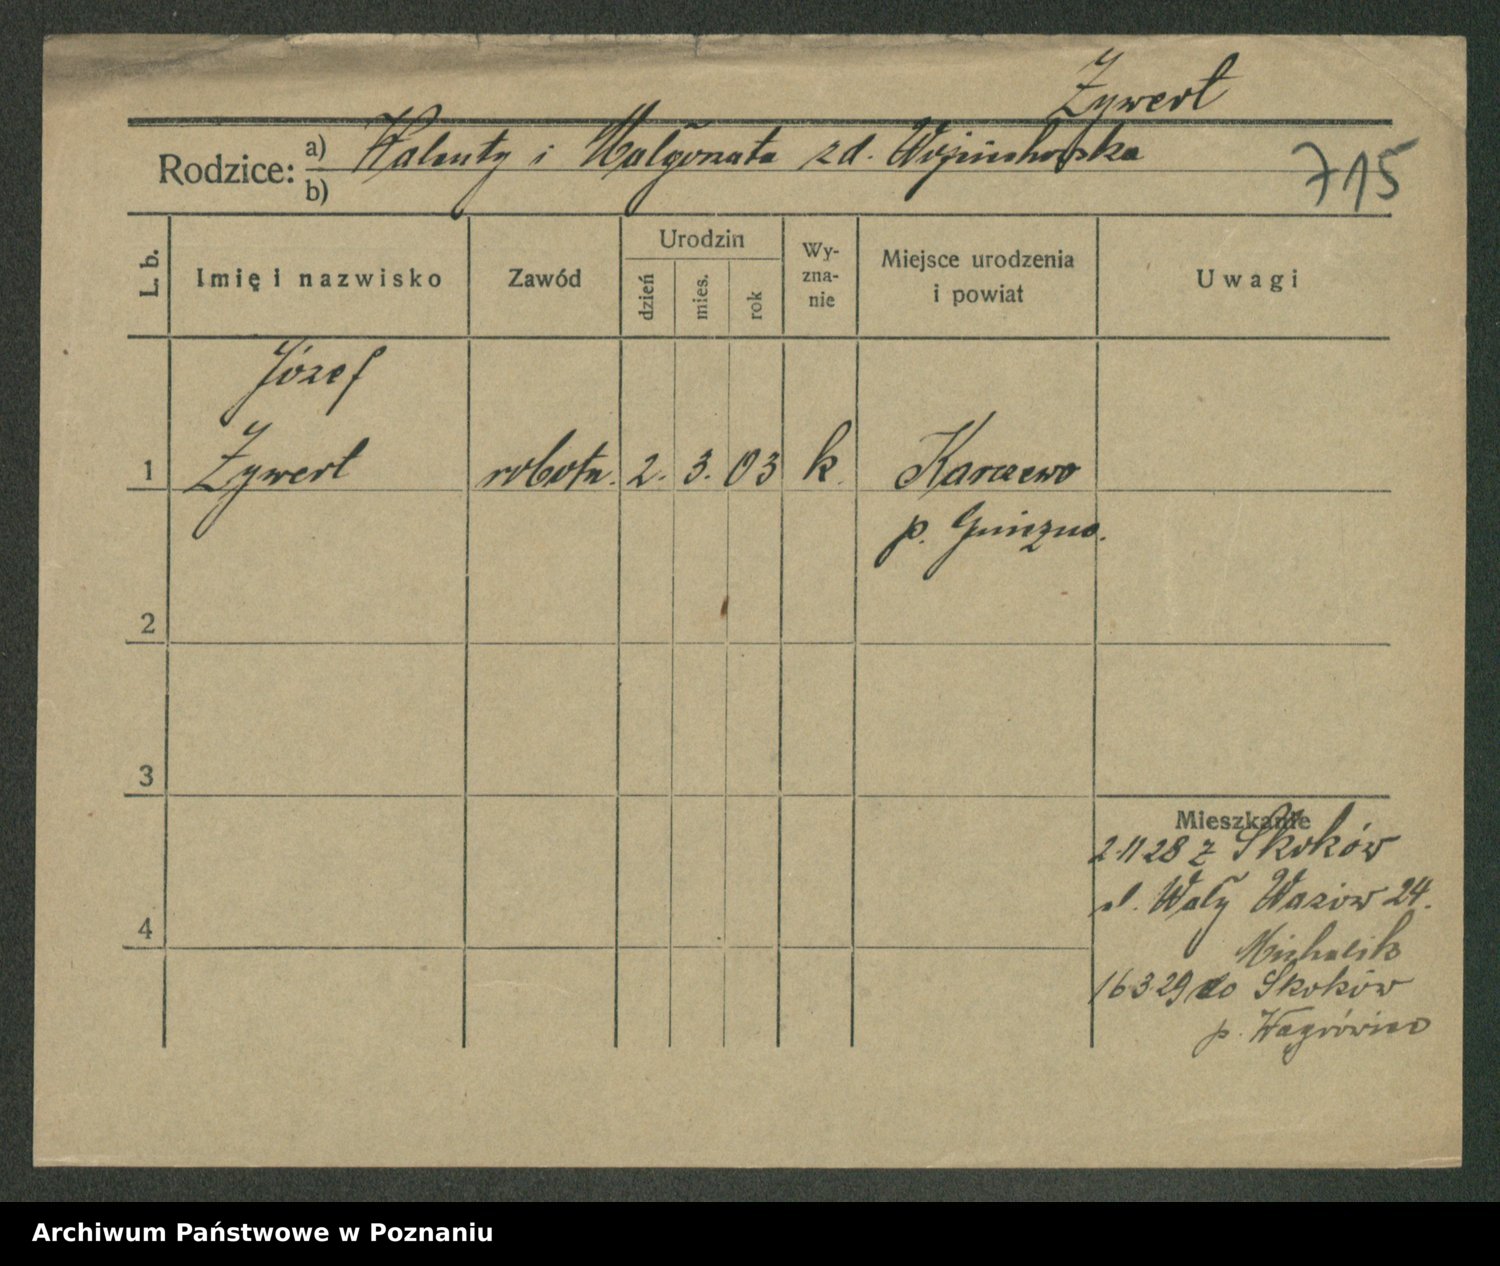 Żywert
Rodzice: a) Walenty i Małgorzata zd. Wojciechowska
b)
715
L. b.
Imię i nazwisko
Zawód
Urodzin
dzień
mies.
rok
Wy-
zna-
nie
Miejsce urodzenia
i powiat
Uwagi
Józef
1 Żywert robotn. 2. 3. 03 k. Karczewo
p. Gniezno.
2
3
Mieszkanie
2.11 28 z Skoków
ul. Wały Wazów 24.
4
Michalik
16 3 29 do Skoków
p. Wągrówiec